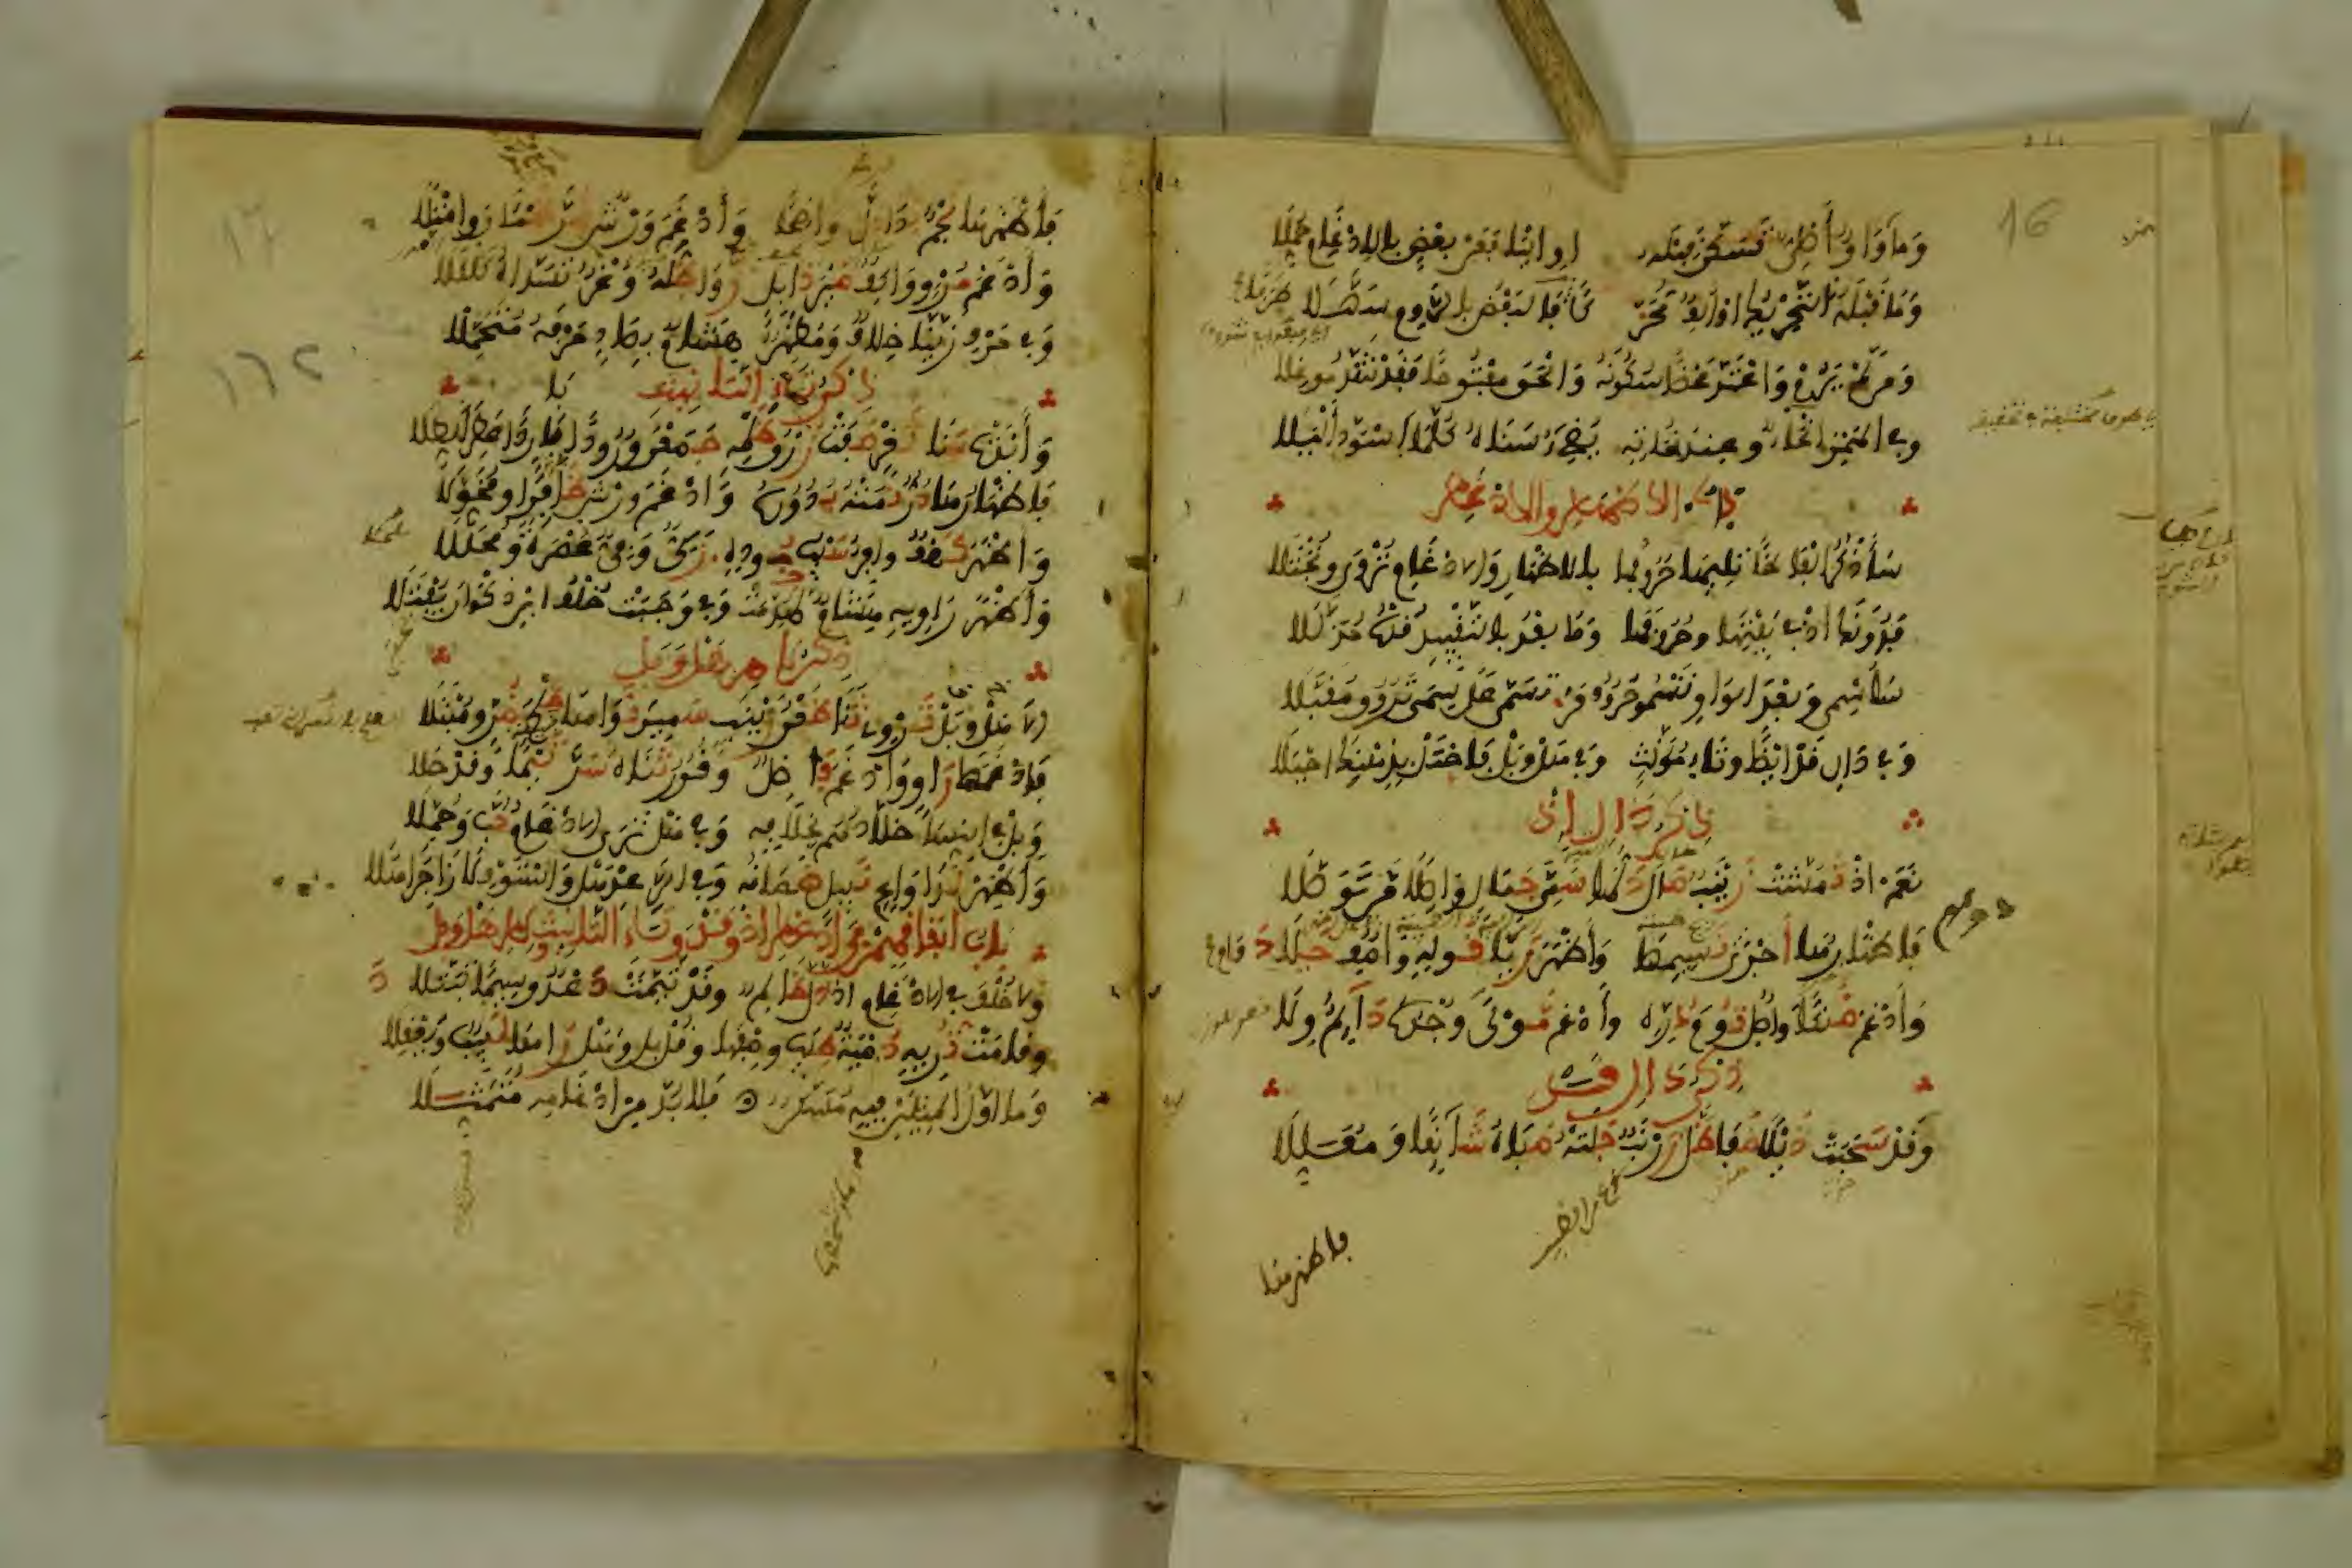 16
وَمَا وَاوٌ أَصْلِيٌّ تَسَكَّنَ قَبْلَهُ أو اليا فَعَنْ بَعْضٍ بالإدْغَامِ حُمِّلَا
وَمَا قَبْلَهُ التَّحْرِيكُ أَوْ أَلِفٌ مُحَرَّكًا فالبَعْضُ بالرَّوْمِ سَهَّلَا
وَمَنْ لَمْ يَرُمْ وَاعْتَدَّ مَحْضًا سُكُونَهُ وَأَلْحَقَ مَفْتُوحًا فَقَدْ شَذَّ مُوغِلَا
وَفِي الهَمْزِ أَنْحَاءٌ وَعِنْدَ نُحَاتِهِ يُضِيءُ سَنَاهُ كُلَّمَا اسْوَدَّ أَلْيَلَا
ذكر الإظهار والإدغام
سَأَذْكُرُ أَلْفَاظًا تَلِيهَا حُرُوفُهَا بِالإظْهَارِ وَالإدْغَامِ تُرْوَى وَتُجْتَلَا
فَدُونَكَ إِذْ فِي بَيْتِهَا وَحُرُوفَهَا وَمَا بَعْدُ بِالتَّقْيِيدِ قُدْهُ مُذَلَّلَا
سَأُسْمِي وَبَعْدَ الوَاوِ تَسْمُو حُرُوفُ مَنْ تَسَمَّى عَلَى سِيمَى تَرُوقُ مُقَبَّلَا
وَفِي دَالِ قَدْ أَيْضًا وَتَاءِ مُؤَنَّثٍ وَفِي هَلْ وَبَلْ فَاحْتَلْ بِذِهْنِكَ أَحْيَلَا
ذكر ذال إذ
نَعَمْ إِذْ تَمَشَّتْ زَيْنَبٌ صَالَ دَلُّهَا سَمِيَّ جَمَالٍ وَاصِلًا مَنْ تَوَصَّلَا
فَإِظْهَارُهَا أَجْرَى نَسِيمِهَا وَأَظْهَرَ رَيَّا قَوْلِهِ وَاصِفٌ جَلَا
وَأَدْغَمَ ضَنْكًا وَاصِلٌ تُومَ دُرِّهِ وَأَدْغَمَ مَوْلًى وُجْدُهُ دَائِمٌ وِلَا
ذكر دال قد
وَقَدْ سَحَبَتْ ذَيْلًا ضَفَا ظَلَّ زَرْنَبٌ جَلَتْهُ صَبَاهُ شَائِقًا وَمُعَلِّلَا
فاظهرها
فَأَظْهَرَهَا نَجْمٌ بدا دَلَّ وَاضِحًا وَأَدْغَمَ وَرْشٌ ضَرَّ ظَمْآنَ وَامْتَلَا
وَأَدْغَمَ مُرْوٍ وَاكِفٌ ضَيْرَ ذَابِلٍ زَوَى ظِلَّهُ وَغْرٌ تَسَدَّاهُ كَلْكَلَا
وَفِي حَرْفِ زَيَّنَّا خِلَافٌ وَمُظْهِرٌ هِشَامٌ بِصَادٍ حَرْفَهُ مُتَحَمِّلَا
ذكر تاء التأنيث
وَأَبْدَتْ سَنَا ثَغْرٍ صَفَتْ زُرْقُ ظَلْمِهِ جَمَعْنَ وُرُودًا بَارِدًا عَطِرَ الطِّلَا
فَإِظْهَارُهَا دُرٌّ نَمَتْهُ بُدُورُهُ وَأَدْغَمَ وَرْشٌ ظَافِرًا وَمُخَوَّلَا
وَأَظْهَرَ كَهْفٌ وَافِرٌ سَيْبُ جُودِهِ زَكِيٌّ وَفِيٌّ عُصْرَةً وَمُحَلَّلَا
وَأَظْهَرَ رَاوِيهِ هِشَامٌ لَهُدِّمَتْ وَفِي وَجَبَتْ خُلْفُ ابْنِ ذَكْوَانَ يُفْتَلَا
ذكر لام هل وبل
أَلَا هَلْ وَبَلْ تَرْوِي ثَنَا ظَعْنِ زَيْنَبٍ سَمِيرَ نَوَاهَا طِلْحَ ضُرٍّ وَمُبْتَلَا
فَأَدْغَمَهَا رَاوٍ وَأَدْغَمَ فَاضِلٌ وَقُورٌ ثَنَاهُ سَرَّ تَيْمًا وَقَدْ حَلَا
وَبَلْ فِي النِّسَا خَلَّادُهُمْ بِخِلَافِهِ وَفِي هَلْ تَرَى الإدْغَامُ حُبَّ وَحُمِّلَا
وَأَظْهِرْ لَدَى وَاعٍ نَبِيلٍ ضَمَانُهُ وَفِي الرَّعْدِ هَلْ وَاسْتَوْفِ لَا زَاجِرًا هَلَا
باب اتفاقهم في إدغام إذ وقد وتاء التأنيث وهل وبل
وَلَا خُلْفَ فِي الإدْغَامِ إِذْ ذَلَّ ظَالِمٌ وَقَدْ تَيَّمَتْ دَعْدٌ وَسِيمًا تَبَتَّلَا
وَقَامَتْ تُرِيهِ دُمْيَةٌ طِيبَ وَصْفِهَا وَقُلْ بَلْ وَهَلْ رَاهَا لَبِيبٌ وَيَعْقِلَا
وَمَا أَوَّلُ المِثْلَيْنِ فِيهِ مُسَكَّنٌ فَلَا بُدَّ مِنْ إِدْغَامِهِ مُتَمَثِّلَا